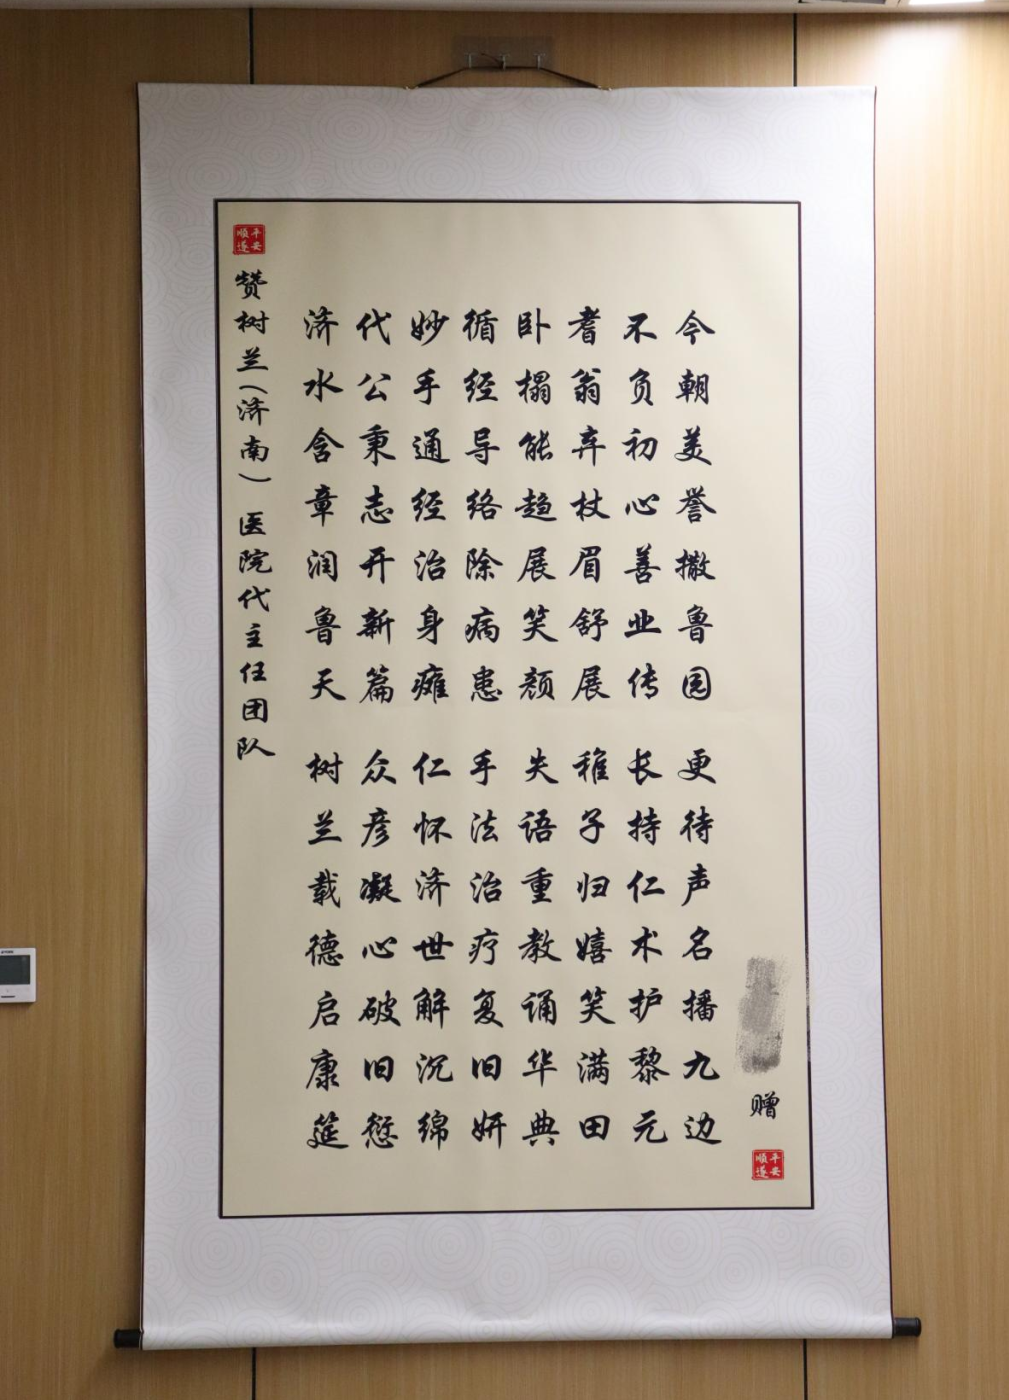 平安順遂
赞树兰（济南）医院代主任团队
济水含章润鲁天 树兰载德启康筵
代公秉志开新篇 众彦凝心破旧愆
妙手通经治身瘫 仁怀济世解沉绵
循经导络除病患 手法治疗复旧妍
卧榻能趋展笑颜 失语重教诵华典
耆翁弃杖眉舒展 稚子归嬉笑满田
不负初心善业传 长持仁术护黎元
今朝美誉撒鲁园 更待声名播九边
赠
平安順遂